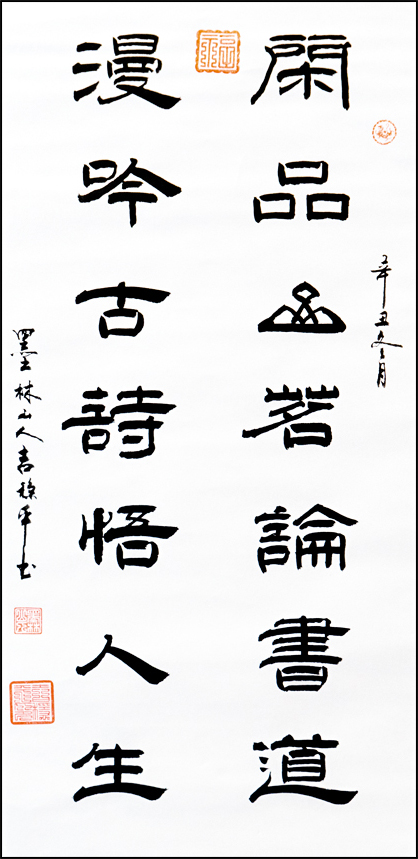 辛丑冬月
閑品山茗論書道
漫吟古詩悟人生
墨林山人袁平书